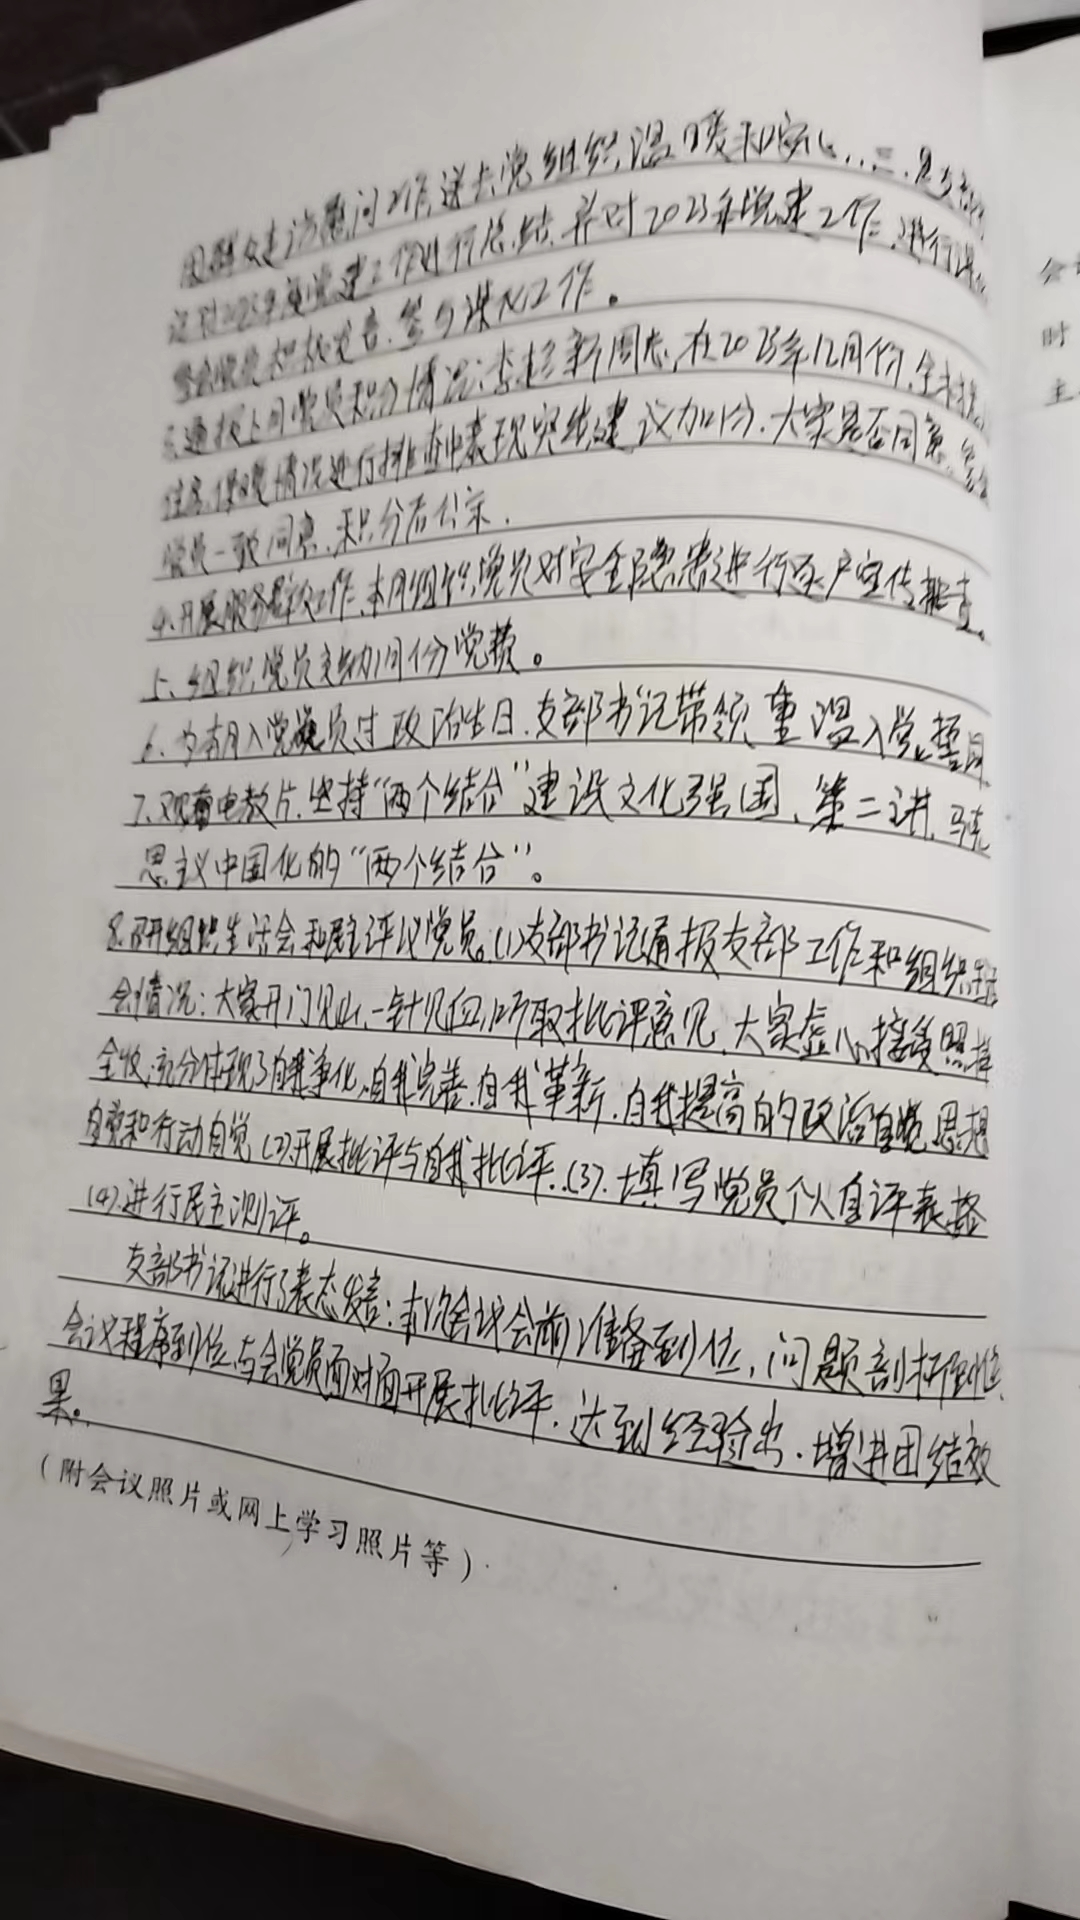 困群众走访慰问工作,送去党组织温暖和
2023年度党建工作进行总结,并对2023年党建工作进行
积极发言,参与谋划工作。
3.通报上月党员积分情况:李 新同志,在2023年12月份,
情况进行排查中表现突出,建议加1分,大家是否同意,
党员一致同意,积分后公示,
4、开展服务群众工作,本月组织党员对安全隐患进行逐户宣传排查。
5、组织党员主动 月份党费。
6、为本月入党党员过政治生日,支部书记带领重温入党誓词
7、观看电教片,坚持“两个结合”建设文化强国,第二讲,马克
思主义中国化的“两个结合”。
8.召开组织生活会和民主评议党员。(1)支部书记通报支部工作和组织生活
会情况:大家开门见山,一针见血,听取批评意见,大家虚心接受照单
全收,充分体现了自我净化,自我完善,自我革新,自我提高的政治自觉思想
自觉和行动自觉(2)开展批评与自我批评.(3).填写党员个人自评表格
(4).进行民主测评。
支部书记进行了表态发言:本次会议会前准备到位,问题剖析到位,
会议程序到位,与会党员面对面开展批评,达到经验出,增进团结效
果。
(附会议照片或网上学习照片等)
会
时
主